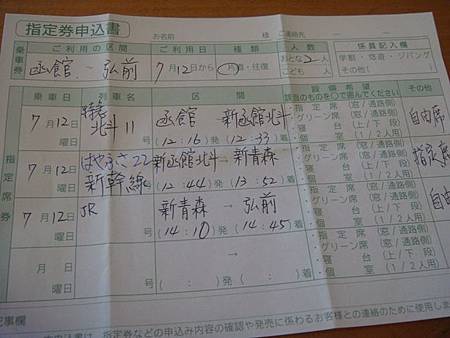 指定券申込書 お名前 様 ご連絡先
乗車券 ご利用の区間 ご利用日 種類 人数 係員記入欄
函館 - 弘前 7月12日から 片道・往復 おとな2人 こども 人 学割・悠遊・ジパング その他(
指定席券 乗車日 列車名 区間 設備希望 該当のものを○で囲んでください その他
7月12日 曜日 北斗11 号 函館 → 新函館北斗 (12:16)発 (12:33)着 自由席
・指定席(窓/通路側)
・グリーン席(窓/通路側)
・寝台(上/下段)
・個室(1/2人用)
7月12日 曜日 はやぶさ22 新幹線 号 新函館北斗 → 新青森 (12:44)発 (13:52)着 指定席
・指定席(窓/通路側)
・グリーン席(窓/通路側)
・寝台(上/下段)
・個室(1/2人用)
7月12日 曜日 JR 号 新青森 → 弘前 (14:10)発 (14:45)着 自由
・指定席(窓/通路側)
・グリーン席(窓/通路側)
・寝台(上/下段)
・個室(1/2人用)
月 日 曜日 号 → ( : )発 ( : )着
・指定席(窓/通路側)
・グリーン席(窓/通路側)
・寝台(上/下段)
・個室(1/2人用)
記事欄
申込書は、指定券などの申込み内容の確認や発売に係わるお客様との連絡のために使用しま